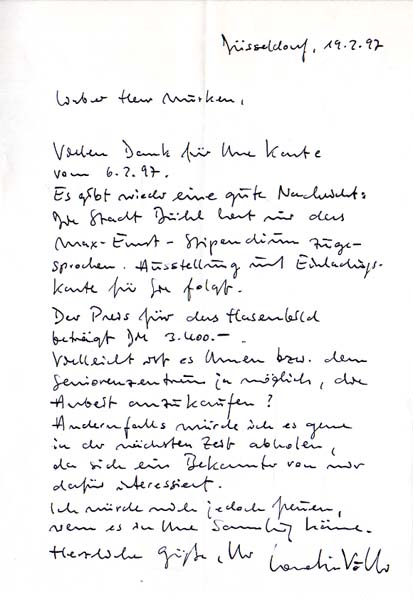 Düsseldorf, 19.2.97
Lieber Herr Murken,
Vielen Dank für Ihre Karte
vom 6.2.97.
Es gibt wieder eine gute Nachricht:
Die Stadt Brühl hat mir das
Max-Ernst-Stipendium zuge-
sprochen. Ausstellung mit Einladungs-
karte für Sie folgt.
Der Preis für das Hasenbild
beträgt DM 3.400.-.
Vielleicht ist es Ihnen bzw. dem
Seniorenzentrum ja möglich, die
Arbeit anzukaufen?
Andernfalls würde ich es gerne
in der nächsten Zeit abholen,
da sich ein Bekannter von mir
dafür interessiert.
Ich würde mich jedoch freuen,
wenn es in Ihre Sammlung käme.
Herzliche Grüße, Ihr